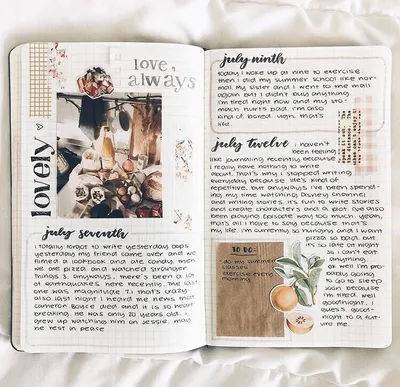 love,
always
lovely
july seventh
i totally forgot to write yesterday oops.
yesterday my friend came over and we
filmed a lookbook and ate candy. then
we ate pizza and watched stranger
things 3. anyways, there's been a lot
of earthquakes here recently. the last
one was magnitude 7.1 that's crazy
also last night i heard the news that
cameron boyce died and it is so heart
breaking. he was only 20 years old. i
grew up watching him on jessie. may
he rest in peace
july ninth
today i woke up at nine to exercise
then i did my summer school like nor-
mal. my sister and i went to the mall
again but i didn't buy anything
i'm tired right now and my sto-
mach hurts bad. i'm also
kind of bored. ugh. that's
life.
july twelve
i haven't
been feeling
like journaling recently because
i really have nothing to write
about. that's why i stopped writing
everyday because life's kind of
repetitive. but anyways i've been spend-
ing my time watching disney channel
and writing stories. it's fun to write stories
and create characters and a plot. i've also
been playing episode way too much. yeah,
that's all i have to say because that's
my life. i'm currently so hungry and i want
pizza so bad. but
it's so late at night
so i can't eat
anything.
oh well i'm pro-
bably going
to go to sleep
soon because
i'm tired. well
goodnight, i
guess. good-
night to a fut-
ure me.
TO DO:
do my summer
classes
exercise every
morning